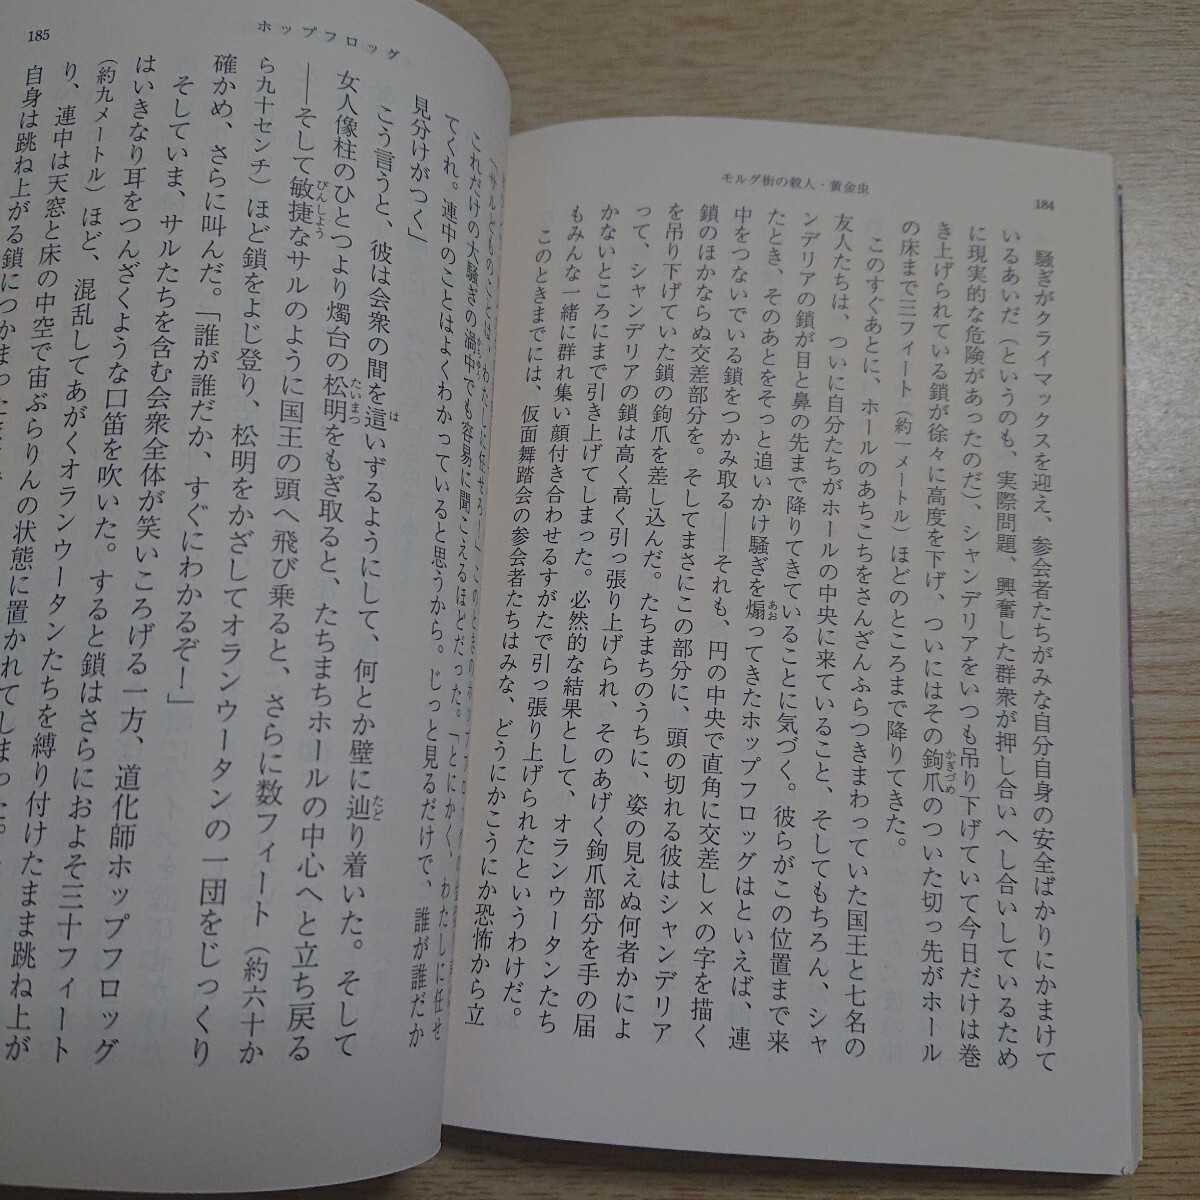 モルグ街の殺人・黄金虫
184
騒ぎがクライマックスを迎え、参会者たちがみな自分自身の安全ばかりにかまけて
いるあいだ（というのも、実際問題、興奮した群衆が押し合いへし合いしているため
に現実的な危険があったのだ）、シャンデリアをいつも吊り下げていて今日だけは巻
き上げられている鎖が徐々に高度を下げ、ついにはその鉤爪のついた切っ先がホール
の床まで三フィート（約一メートル）ほどのところまで降りてきた。
このすぐあとに、ホールのあちこちをさんざんふらつきまわっていた国王と七名の
友人たちは、ついに自分たちがホールの中央に来ていること、そしてもちろん、シャ
ンデリアの鎖が目と鼻の先まで降りてきていることに気づく。彼らがこの位置まで来
たとき、そのあとをそっと追いかけ騒ぎを煽ってきたホップフロッグはといえば、連
中をつないでいる鎖をつかみ取る――それも、円の中央で直角に交差し×の字を描く
鎖のほかならぬ交差部分を。そしてまさにこの部分に、頭の切れる彼はシャンデリア
を吊り下げていた鎖の鉤爪を差し込んだ。たちまちのうちに、姿の見えぬ何者かによ
って、シャンデリアの鎖は高く高く引っ張り上げられ、そのあげく鉤爪部分を手の届
かないところにまで引き上げてしまった。必然的な結果として、オランウータンたち
もみんな一緒に群れ集い顔付き合わせるすがたで引っ張り上げられたというわけだ。
このときまでには、仮面舞踏会の参会者たちはみな、どうにかこうにか恐怖から立
ホップフロッグ
185
「サルどものことは、わたしに任せろ！」
これだけの大騒ぎの渦中でも容易に聞こえるほどだった。「とにかく、わたしに任せ
てくれ。連中のことはよくわかっていると思うから。じっと見るだけで、誰が誰だか
見分けがつく」
こう言うと、彼は会衆の間を這いずるようにして、何とか壁に辿り着いた。そして
女人像柱のひとつより燭台の松明をもぎ取ると、たちまちホールの中心へと立ち戻る
――そして敏捷なサルのように国王の頭へ飛び乗ると、さらに数フィート（約六十か
ら九十センチ）ほど鎖をよじ登り、松明をかざしてオランウータンの一団をじっくり
確かめ、さらに叫んだ。「誰が誰だか、すぐにわかるぞ！」
そしていま、サルたちを含む会衆全体が笑いころげる一方、道化師ホップフロッグ
はいきなり耳をつんざくような口笛を吹いた。すると鎖はさらにおよそ三十フィート
（約九メートル）ほど、混乱してあがくオランウータンたちを縛り付けたまま跳ね上が
り、連中は天窓と床の中空で宙ぶらりんの状態に置かれてしまった。
自身は跳ね上がる鎖につかまった